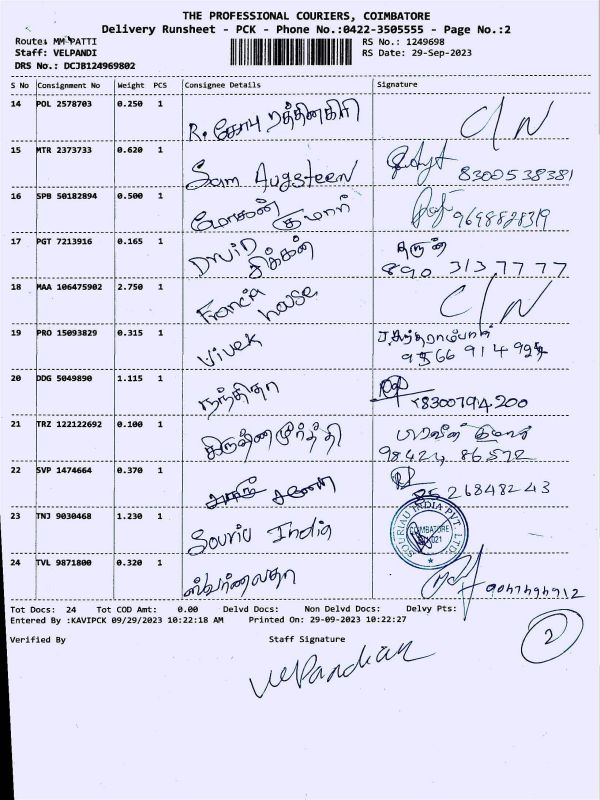 THE PROFESSIONAL COURIERS, COIMBATORE
Delivery Runsheet - PCK - Phone No.:0422-3505555 - Page No.:2
Route: MM PATTI
RS No.: 1249698
Staff: VELPANDI
RS Date: 29-Sep-2023
DRS No.: DCJB124969802
S No Consignment No Weight PCS Consignee Details Signature
14 POL 2578703 0.250 1 R. கோபு ரத்தினகிரி C/N
15 MTR 2373733 0.620 1 Sam Augsteen 8300538381
16 SPB 50182894 0.500 1 மோகன் குமார் 9698828319
17 PGT 7213916 0.165 1 DAVID சிக்கன் அருண்
890 313 7777
18 MAA 106475902 2.750 1 Francis house C/N
19 PRO 15093829 0.315 1 Vivek
9566 914 924
20 DDG 5049890 1.115 1 நந்திதா 8300794200
21 TRZ 122122692 0.100 1 கிருஷ்ணமூர்த்தி
98424 86572
22 SVP 1474664 0.370 1 26848243
23 TNJ 9030468 1.230 1 Souriu India
SOURIAU INDIA PVT. LTD.
COIMBATORE
24 TVL 9871800 0.320 1 ஸ்வர்ணலதா
Tot Docs: 24 Tot COD Amt: 0.00 Delvd Docs: Non Delvd Docs: Delvy Pts:
Entered By :KAVIPCK 09/29/2023 10:22:18 AM Printed On: 29-09-2023 10:22:27
Verified By Staff Signature
2
VelPandian